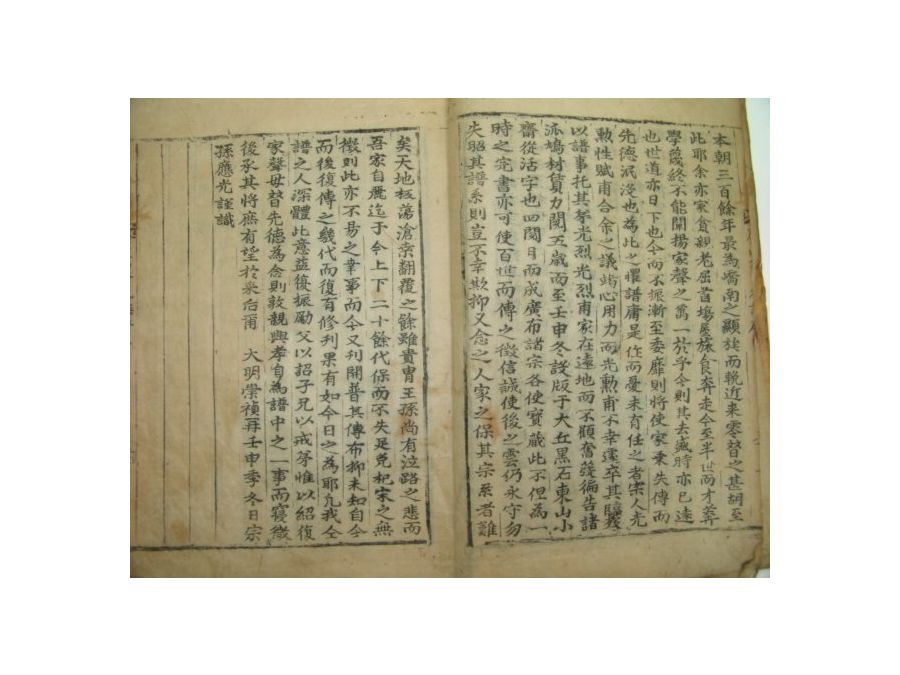 本朝三百餘年最爲嶠南之顯族而輓近来零替之甚胡至
此耶余亦家貧親老屈首場屋旅食奔走今至半世而才莽
學蔑終不能闡揚家聲之萬一於乎今則其去盛時亦已遠
也世道亦日下也今而不振漸至委靡則將使家乘失傳而
先德泯沒也爲此之懼譜庸是作而憂未有任之者宗人光
勲性賦甫合余之議竭心用力而光勲甫不幸遽卒其臨歿
以譜事托其孝光烈光烈甫家在遠地而不顧奮發徧告諸
派鳩材貲力閱五歲而至壬申冬設版于大丘黑石東山小
齋從活字也四閱月而成廣布諸宗各使寶藏此不但爲一
時之完書亦可使百世而傳之徵信誠使後之雲仍永守勿
失昭其譜系則豈不幸歟抑又念之人家之保其宗系者難
矣天地板蕩滄桑翻覆之餘雖貴胄王孫尚有泣路之悲而
吾家自麗迄于今上下二十餘代保而不失足免杞宋之無
徵則此亦不易之事而今又刊開普其傳布抑未知自今
而後復傳之幾代而復有修刊果有如今日之爲耶凡我仝
譜之人深體此意益復振勵父以詔子兄以戒弟惟以紹復
家聲毋替先德爲念則敦親興孝自爲譜中之一事而寢微
後承其將庶有望於来后爾　大明崇禎再壬申季冬日宗
孫應光謹識